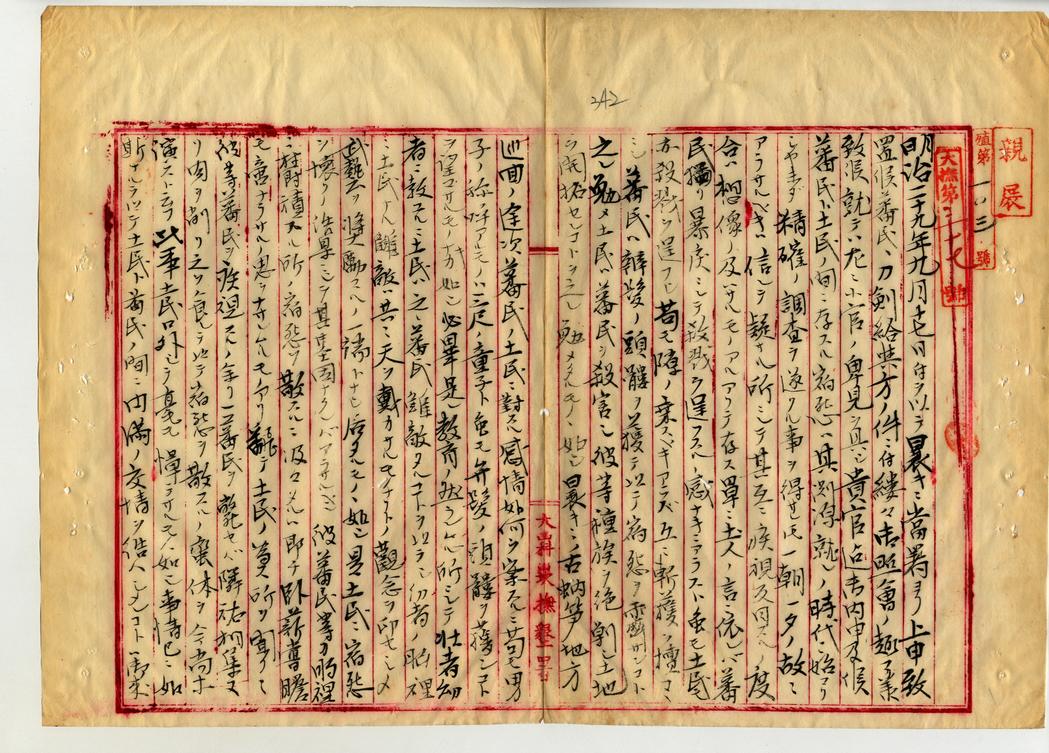 342
親展
殖第一〇三號
大撫第三十七號
明治二十九年九月十七日付ヲ以テ曩キニ當署ヨリ上申致
置候蕃民ヘ刀劍給與方ノ件ニ付縷々御照會ノ趣了承
致候就テハ左ニ小官ノ卑見ヲ具シ貴官迄御内申及候
蕃民ト土民ノ間ニ存スル宿怨ハ其淵源就レノ時代ニ始マリ
シヤ未ダ精確ノ調査ヲ遂クル事ヲ得サルモ一朝一夕ノ故ニ
アラサルベキハ信シテ疑ハサル所ニシテ其互ニ疾視反目スルノ度
合ハ想像ノ及ハサルモノアルアリテ存ス單ニ土人ノ言ニ依レバ蕃
民獨リ暴戻ニシテ殺戮ヲ逞フスルノ感ナキニアラスト雖モ土民
亦殺戮ヲ逞フシ苟モ隙ノ乗スベキアラバ互ニ斬獲ヲ擅ママ
ニシ蕃民ハ辮髪ノ頭髏ヲ獲テ以テ宿怨ヲ霽サンコト
之レ勉メ土民ハ蕃民ヲ殺害シ彼等種族ヲ絶剿シ土地
ヲ開拓センコトヲ之レ勉メタルモノヽ如シ曩キニ舌納笋地方
巡回ノ途次蕃民ノ土民ニ對スル感情如何ヲ案スルニ苟モ男
子ノ称呼アルモノハ三尺ノ童子ト雖モ弁髪ノ頭髏ヲ獲ンコト
ヲ望マサルモノナキカ如シ必畢是レ教育ノ然ラシムル所ニシテ壮者幼
者ニ教フルニ土民ハ之レ蕃民ノ讎敵タルコトヲ以テシ幼者ノ脳裡
ニ土民ハ讎敵ハ共ニ天ヲ戴カサルモノナリトノ觀念ヲ印セシメ
武藝ヲ奨勵スルノ一端トナセシ居タルモノヽ如シ是レ土民ニ宿怨
ヲ懐クノ
ニ欝積スル所ノ宿怨ヲ散スルニ汲々タラシメ即チ臥薪嘗膽
モ
彼等蕃民ヲ疾視スルノ余リ一蕃民ヲ斃セバ隣佑相集リ
ノ肉ヲ削リ之ヲ食シテ以テ宿怨ヲ散スルノ
演ストヨフ此事土民口外シテ毫モ憚ラサルモノヽ如シ事情已ニ如
斯ナルヲ以テ土民ト蕃民ノ間ニ円満ノ交情ヲ結ハシムルコト
大嵙崁撫墾署